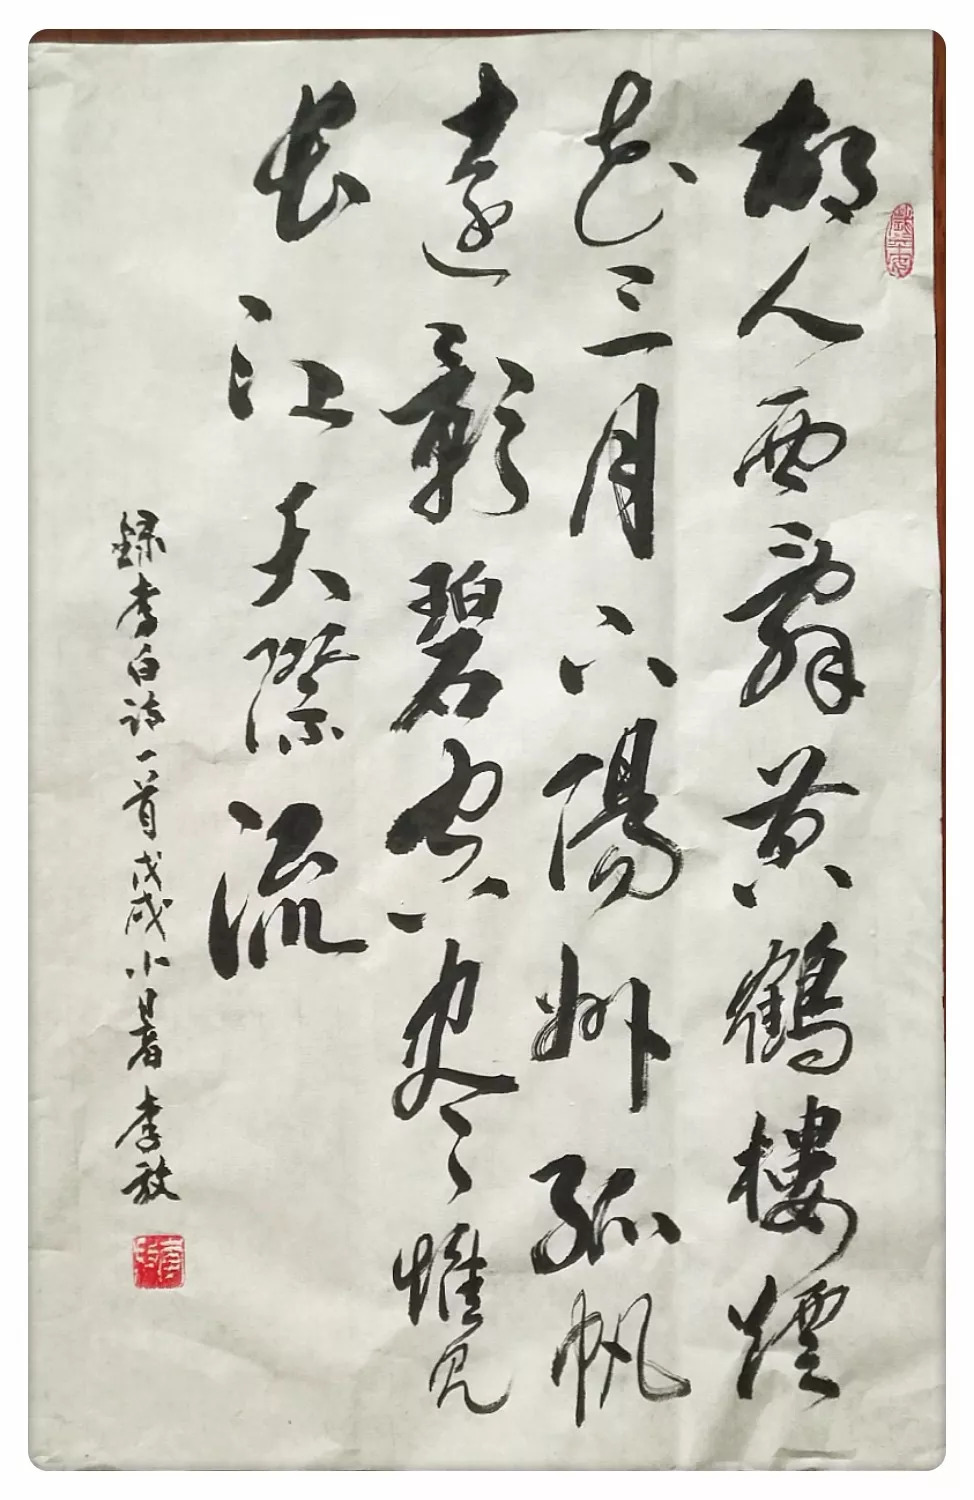 故人西辭黄鶴樓煙
花三月下陽州孤帆
遠影碧空盡惟見
長江天際流
録李白詩一首戊戌小暑李放